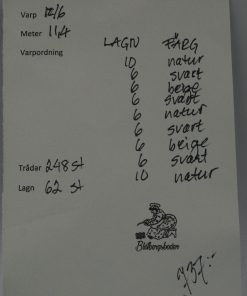 Varp 12/6
Meter 11,4
Varpordning LAGN FÄRG
10 natur
6 svart
6 beige
6 svart
6 natur
6 svart
6 beige
6 svart
Trådar 248 st
Lagn 62 st 10 natur
Bålborgsboden
737:-